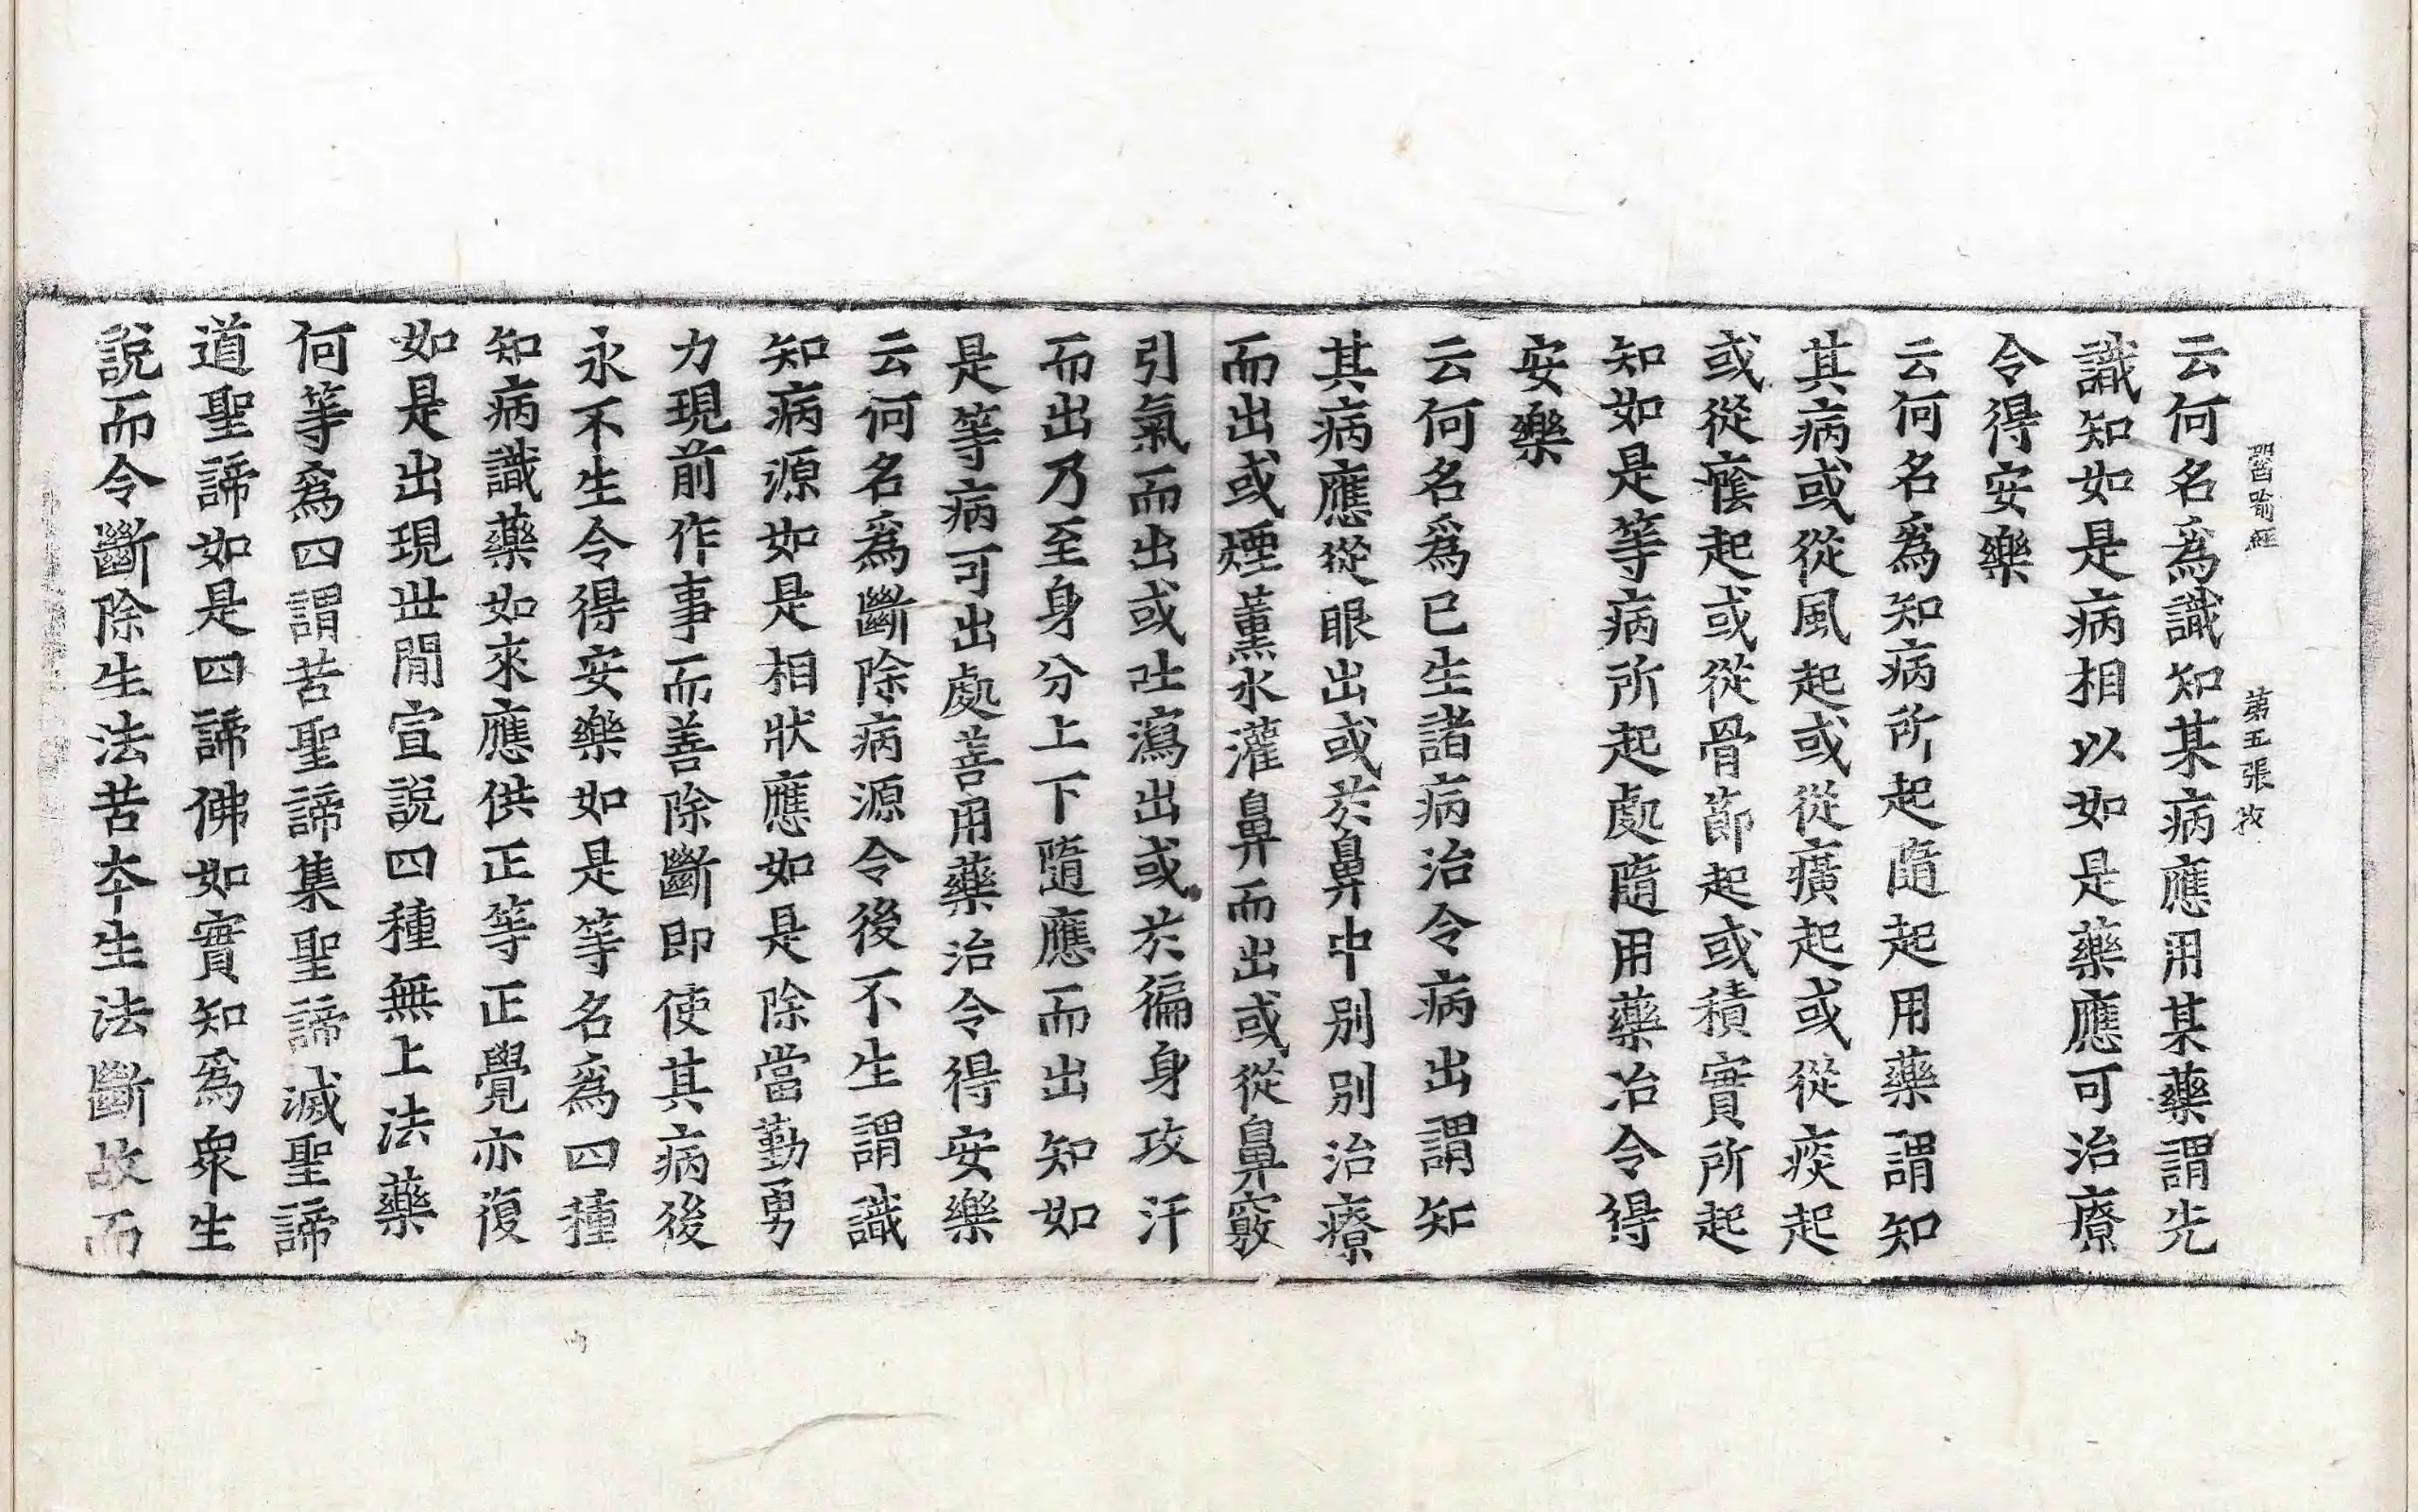 醫喻經 第五張 孜
云何名爲識知某病應用某藥謂先
識知如是病相以如是藥應可治療
令得安樂
云何名爲知病所起隨起用藥謂知
其病或從風起或從癀起或從痰起
或從癊起或從骨節起或積實所起
知如是等病所起處隨用藥治令得
安樂
云何名爲已生諸病治令病出謂知
其病應從眼出或於鼻中別別治療
而出或煙薰水灌鼻而出或從鼻竅
引氣而出或吐瀉出或於徧身攻汗
而出乃至身分上下隨應而出知如
是等病可出處善用藥治令得安樂
云何名爲斷除病源令後不生謂識
知病源如是相狀應如是除當勤勇
力現前作事而善除斷即使其病後
永不生令得安樂如是等名爲四種
知病識藥如來應供正等正覺亦復
如是出現世閒宣說四種無上法藥
何等爲四謂苦聖諦集聖諦滅聖諦
道聖諦如是四諦佛如實知爲衆生
說而令斷除生法苦夲生法斷故而